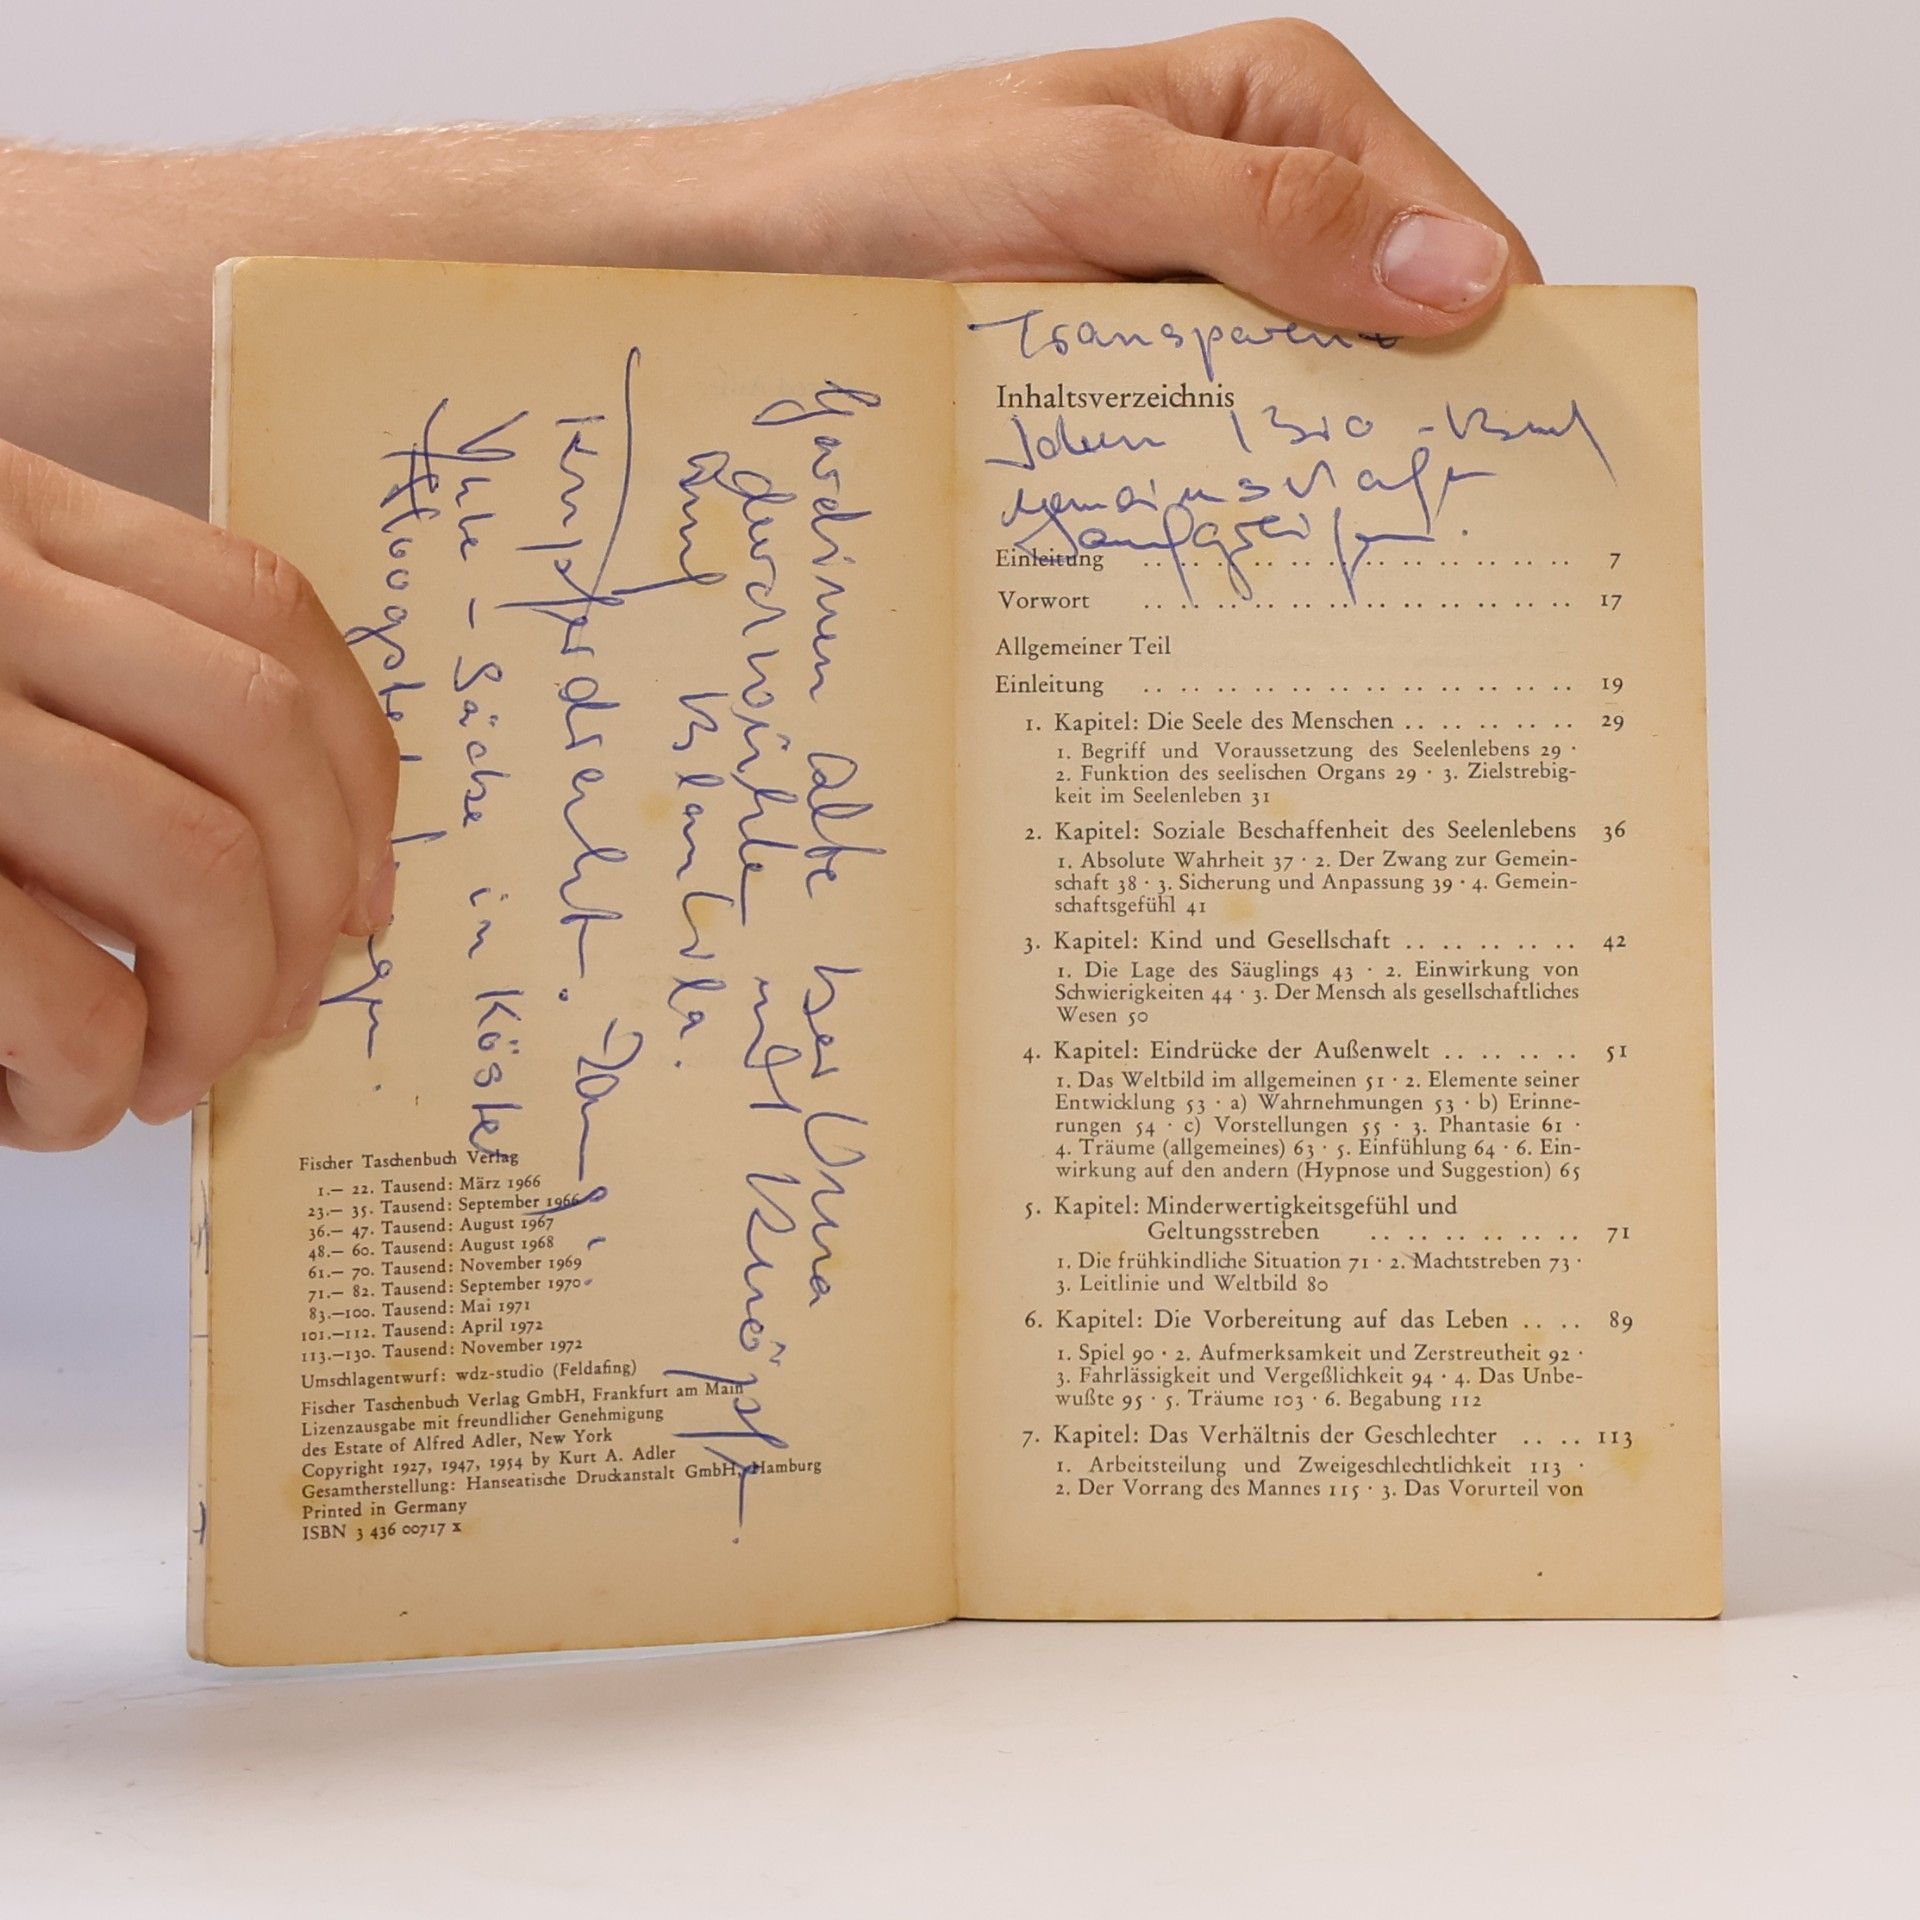 Gardinen
mit
in
Fischer Taschenbuch Verlag
1.– 22. Tausend: März 1966
23.– 35. Tausend: September 1966
36.– 47. Tausend: August 1967
48.– 60. Tausend: August 1968
61.– 70. Tausend: November 1969
71.– 82. Tausend: September 1970
83.–100. Tausend: Mai 1971
101.–112. Tausend: April 1972
113.–130. Tausend: November 1972
Umschlagentwurf: wdz-studio (Feldafing)
Fischer Taschenbuch Verlag GmbH, Frankfurt am Main
Lizenzausgabe mit freundlicher Genehmigung
des Estate of Alfred Adler, New York
Copyright 1927, 1947, 1954 by Kurt A. Adler
Gesamtherstellung: Hanseatische Druckanstalt GmbH, Hamburg
Printed in Germany
ISBN 3 436 00717 x
Transparent
Inhaltsverzeichnis
Einleitung .. .. .. .. .. .. .. .. .. .. .. .. 7
Vorwort .. .. .. .. .. .. .. .. .. .. .. .. 17
Allgemeiner Teil
Einleitung .. .. .. .. .. .. .. .. .. .. .. .. 19
1. Kapitel: Die Seele des Menschen .. .. .. .. .. 29
1. Begriff und Voraussetzung des Seelenlebens 29 ·
2. Funktion des seelischen Organs 29 · 3. Zielstrebig-
keit im Seelenleben 31
2. Kapitel: Soziale Beschaffenheit des Seelenlebens 36
1. Absolute Wahrheit 37 · 2. Der Zwang zur Gemein-
schaft 38 · 3. Sicherung und Anpassung 39 · 4. Gemein-
schaftsgefühl 41
3. Kapitel: Kind und Gesellschaft .. .. .. .. .. 42
1. Die Lage des Säuglings 43 · 2. Einwirkung von
Schwierigkeiten 44 · 3. Der Mensch als gesellschaftliches
Wesen 50
4. Kapitel: Eindrücke der Außenwelt .. .. .. .. 51
1. Das Weltbild im allgemeinen 51 · 2. Elemente seiner
Entwicklung 53 · a) Wahrnehmungen 53 · b) Erinne-
rungen 54 · c) Vorstellungen 55 · 3. Phantasie 61 ·
4. Träume (allgemeines) 63 · 5. Einfühlung 64 · 6. Ein-
wirkung auf den andern (Hypnose und Suggestion) 65
5. Kapitel: Minderwertigkeitsgefühl und
Geltungsstreben .. .. .. .. .. .. 71
1. Die frühkindliche Situation 71 · 2. Machtstreben 73 ·
3. Leitlinie und Weltbild 80
6. Kapitel: Die Vorbereitung auf das Leben .. .. 89
1. Spiel 90 · 2. Aufmerksamkeit und Zerstreutheit 92 ·
3. Fahrlässigkeit und Vergeßlichkeit 94 · 4. Das Unbe-
wußte 95 · 5. Träume 103 · 6. Begabung 112
7. Kapitel: Das Verhältnis der Geschlechter .. .. 113
1. Arbeitsteilung und Zweigeschlechtlichkeit 113 ·
2. Der Vorrang des Mannes 115 · 3. Das Vorurteil von